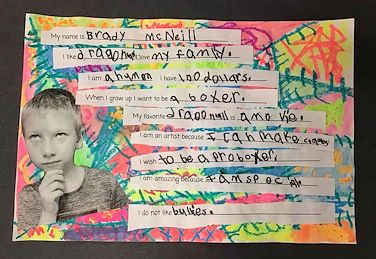 My name is Brady McNeill
I like dragons I love my family.
I am a human I have 100 dollars.
When I grow up I want to be a boxer.
My favorite dragonball is one
I am an artist because I can make
I wish to be a pro boxer.
I am amazing because I am
I do not like bullies.